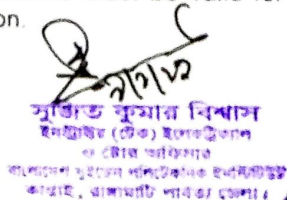 on.
সুজিত কুমার বিশ্বাস
ইনস্ট্রাক্টর (টেক) ইলেকট্রিক্যাল
ও স্টোর অফিসার
বাংলাদেশ সুইডেন পলিটেকনিক ইনস্টিটিউট
কাপ্তাই, রাঙ্গামাটি পার্বত্য জেলা।